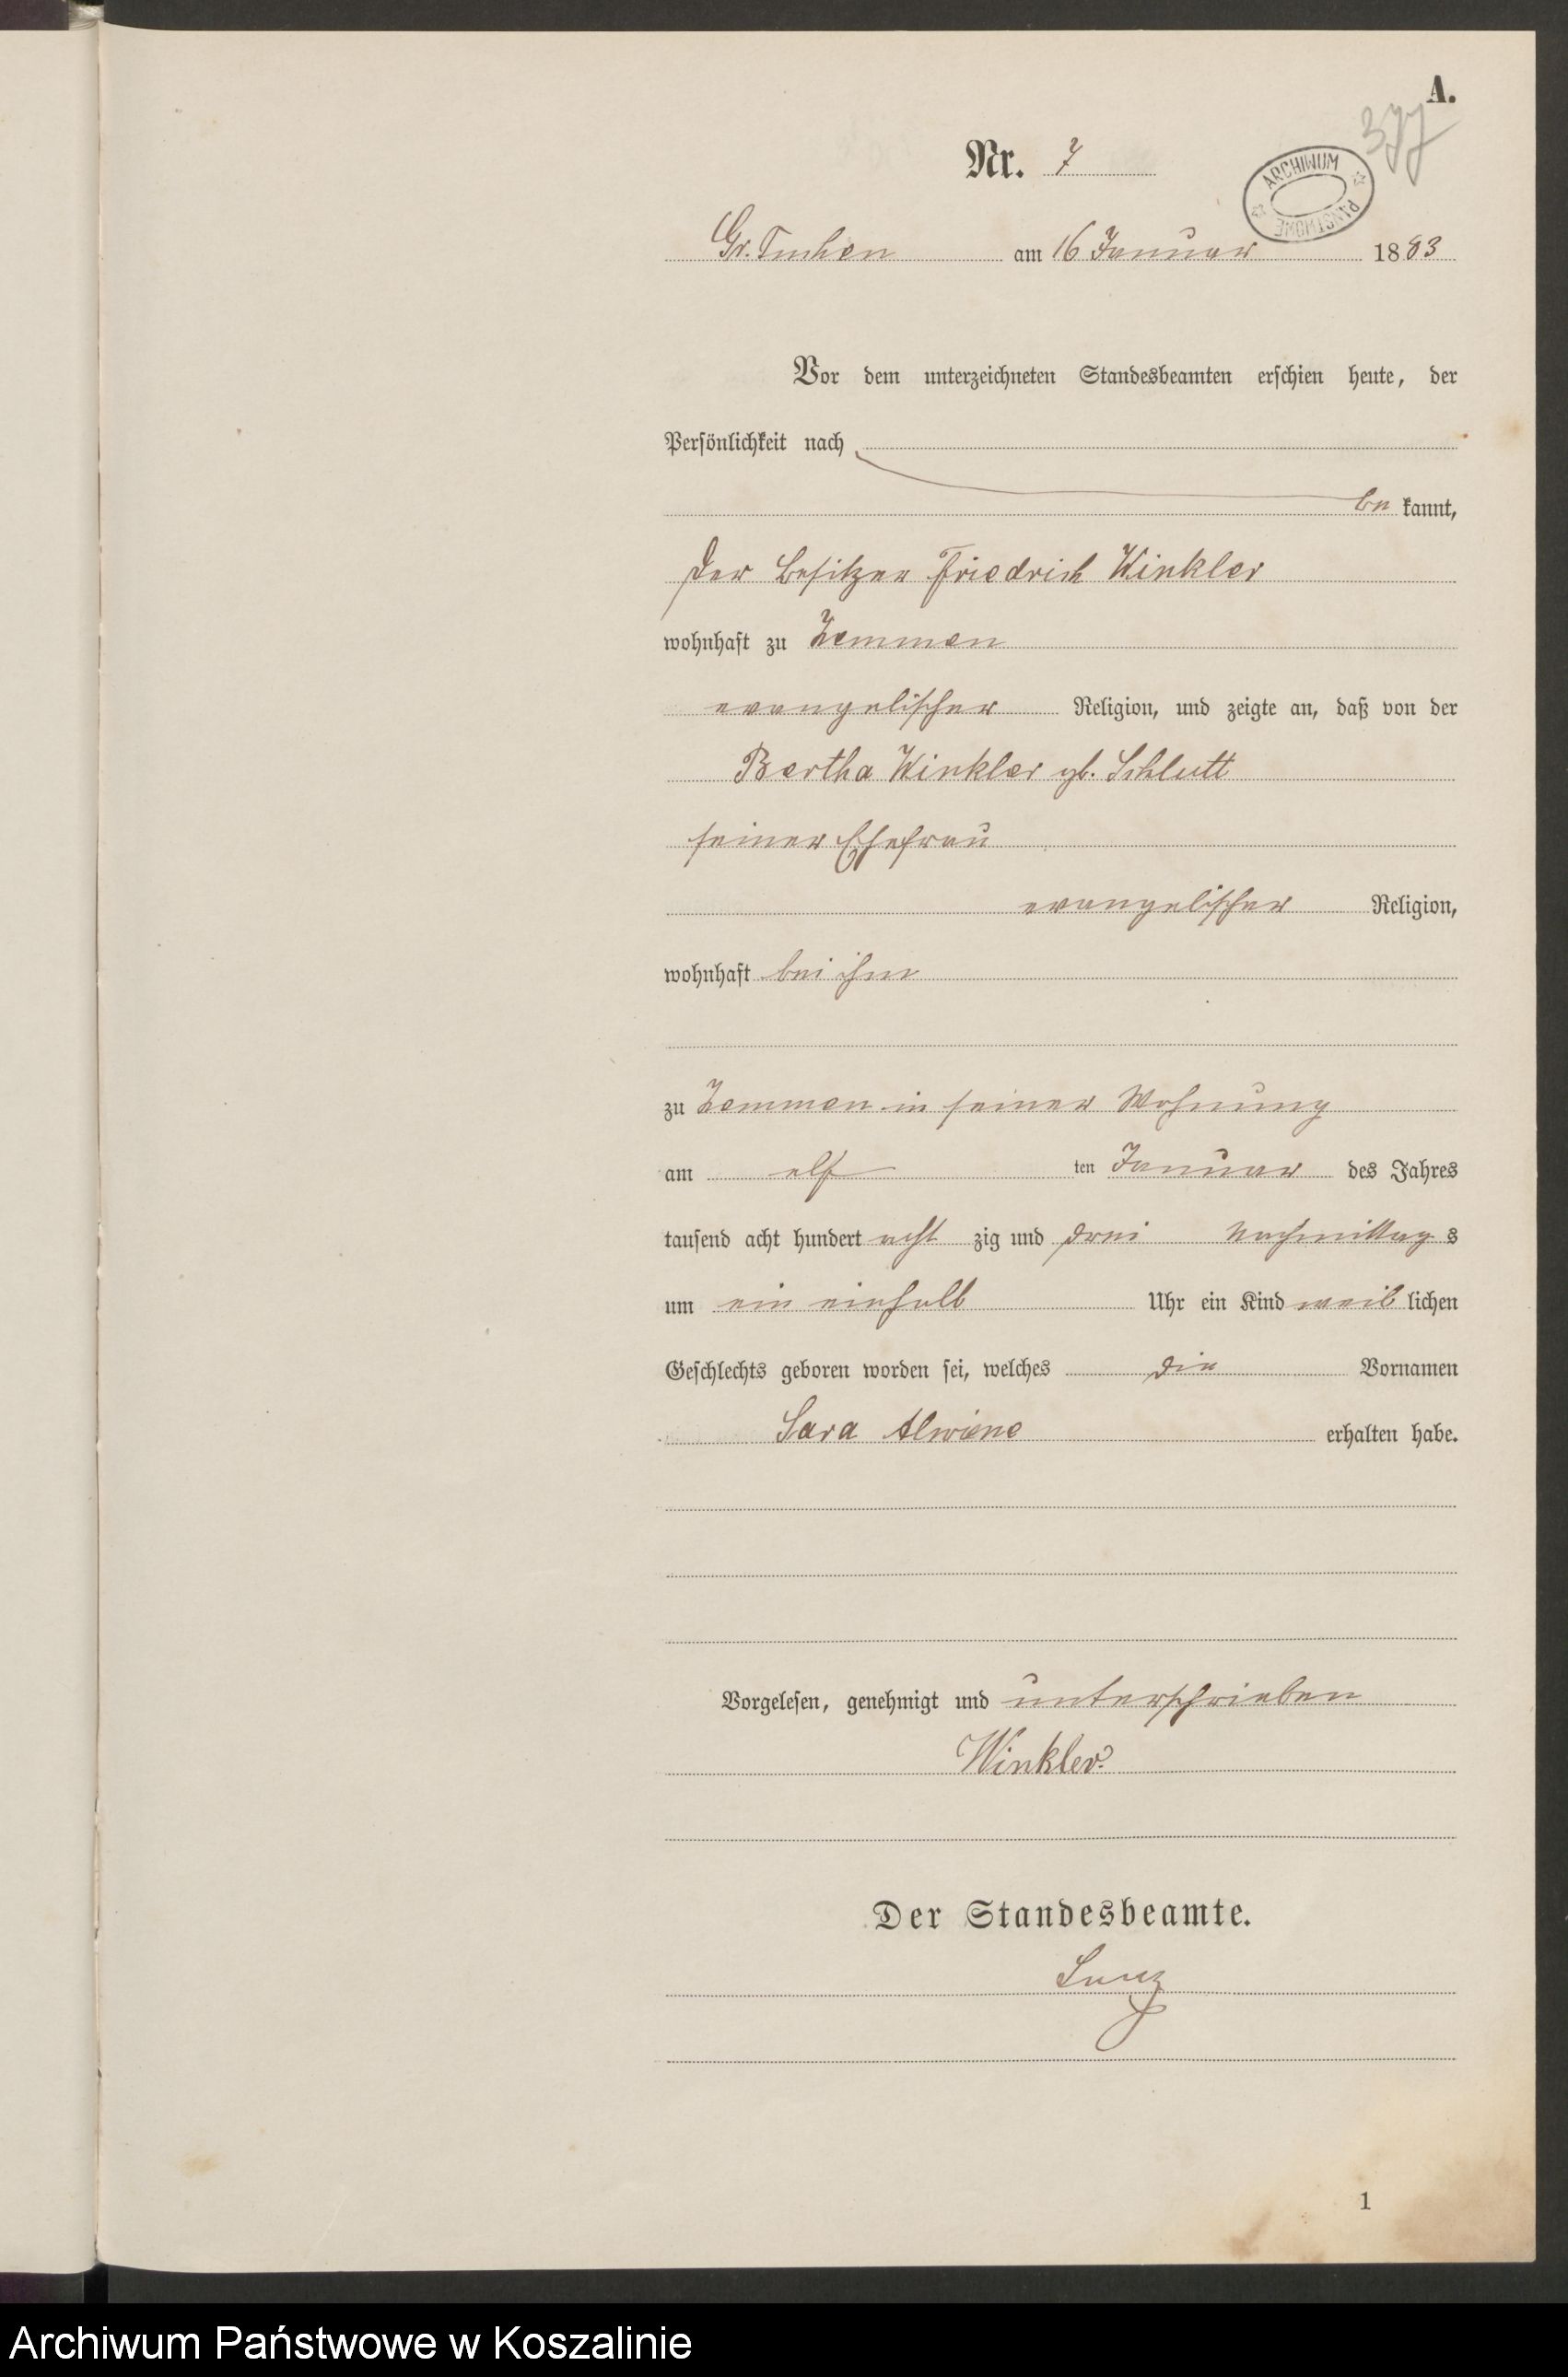 A.
377
Nr. 7
ARCHIWUM PAŃSTWOWE
Gr. Tuchen am 16 Januar 1883
Vor dem unterzeichneten Standesbeamten erschien heute, der
Persönlichkeit nach
be kannt,
der Besitzer Friedrich Winkler
wohnhaft zu Zemmen
evangelischer Religion, und zeigte an, daß von der
Bertha Winkler gb. Schlutt
seiner Ehefrau
evangelischer Religion,
wohnhaft bei ihm
zu Zemmen in seiner Wohnung
am elf ten Januar des Jahres
tausend acht hundert acht zig und drei Nachmittag s
um ein einhalb Uhr ein Kind weib lichen
Geschlechts geboren worden sei, welches die Vornamen
Sara Alwine erhalten habe.
Vorgelesen, genehmigt und unterschrieben
Winkler.
Der Standesbeamte.
1
Archiwum Państwowe w Koszalinie